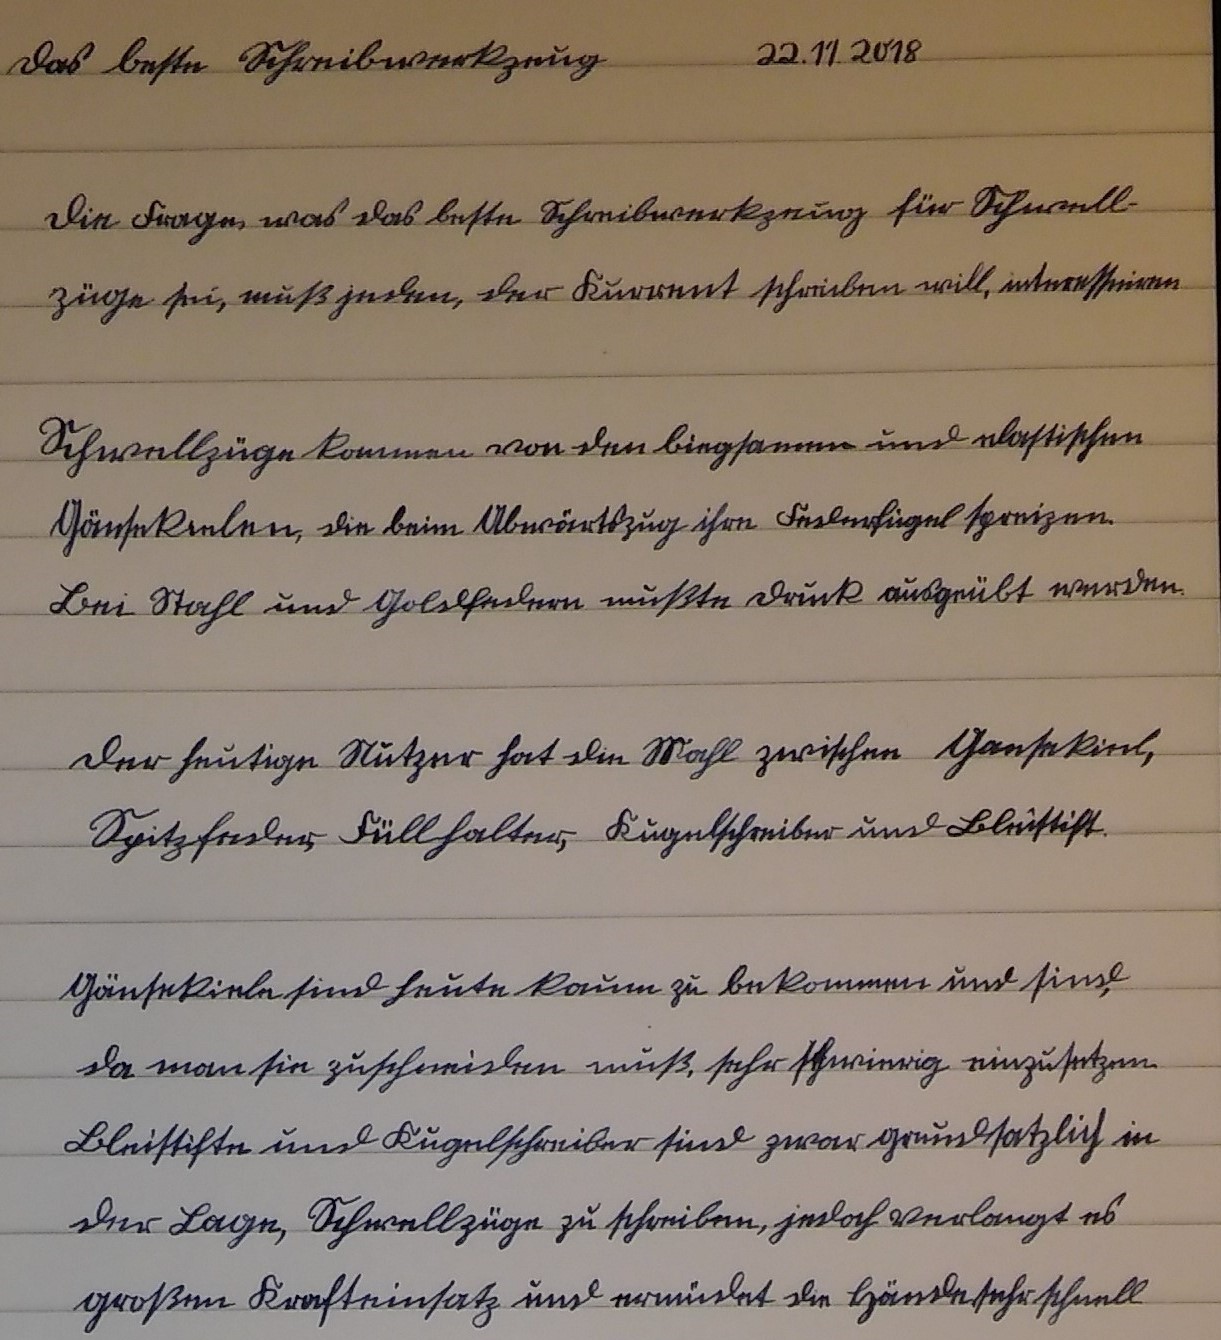 Das beste Schreibwerkzeug 22.11.2018
Die Frage, was das beste Schreibwerkzeug für Schwell-
züge sei, muß jeden, der Kurrent schreiben will, interessieren
Schwellzüge kommen von den biegsamen und elastischen
Gänsekielen, die beim Abwärtszug ihre Federflügel spreizen.
Bei Stahl und Goldfedern mußte Druck ausgeübt werden.
Der heutige Nutzer hat die Wahl zwischen Gansekiel,
Spitzfeder, Füllhalter, Kugelschreiber und Bleistift.
Gänsekiele sind heute kaum zu bekommen und sind,
da man sie zuschneiden muß, sehr schwierig einzusetzen
Bleistifte und Kugelschreiber sind zwar grundsatzlich in
der Lage, Schwellzüge zu schreiben, jedoch verlangt es
großen Krafteinsatz und ermüdet die Hände sehr schnell